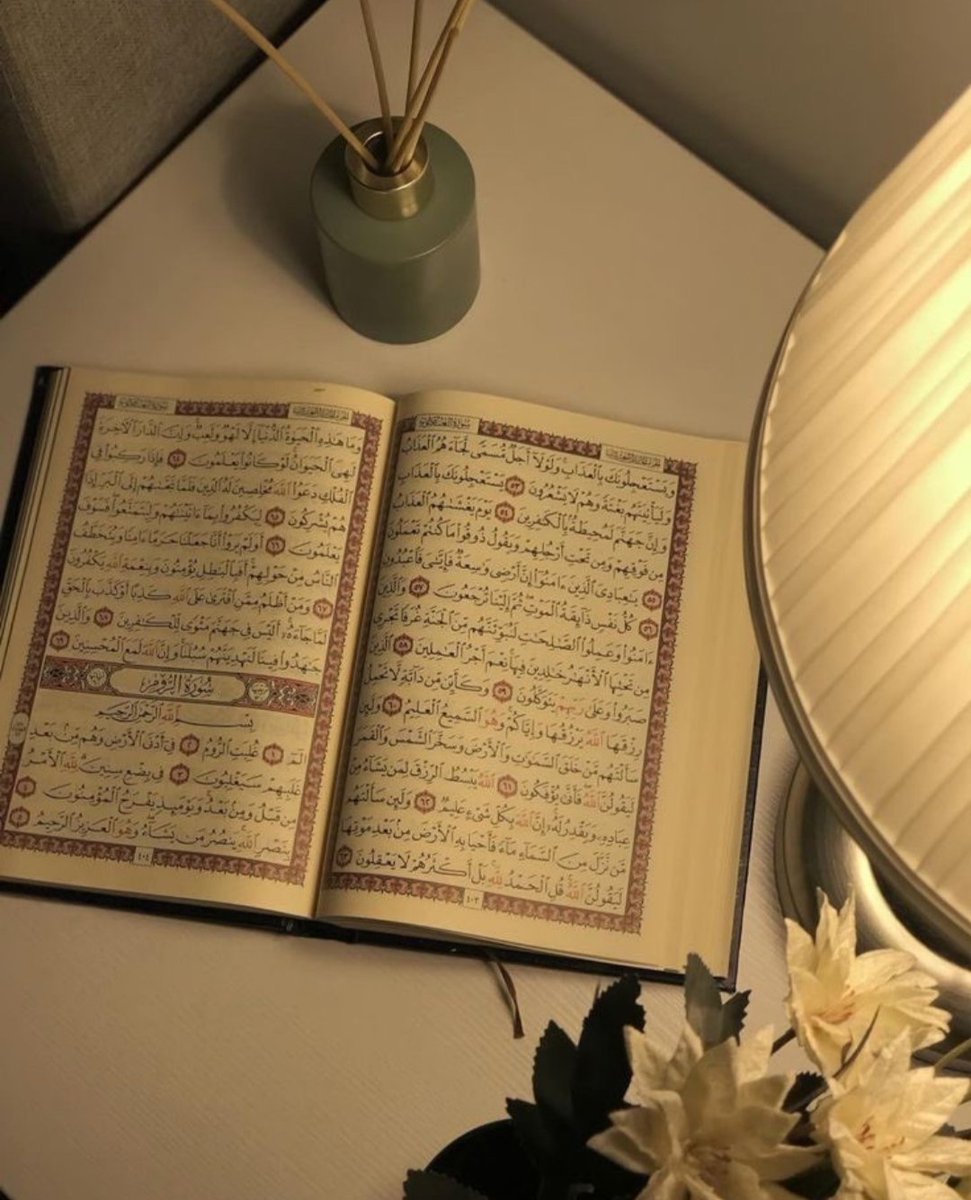 الجزء الحادي والعشرون سورة العنكبوت
وَيَسْتَعْجِلُونَكَ بِٱلْعَذَابِ وَلَوْلَآ أَجَلٌ مُّسَمًّى لَّجَآءَهُمُ ٱلْعَذَابُ
وَلَيَأْتِيَنَّهُم بَغْتَةً وَهُمْ لَا يَشْعُرُونَ ٥٣ يَسْتَعْجِلُونَكَ بِٱلْعَذَابِ
وَإِنَّ جَهَنَّمَ لَمُحِيطَةٌۢ بِٱلْكَٰفِرِينَ ٥٤ يَوْمَ يَغْشَىٰهُمُ ٱلْعَذَابُ
مِن فَوْقِهِمْ وَمِن تَحْتِ أَرْجُلِهِمْ وَيَقُولُ ذُوقُوا۟ مَا كُنتُمْ تَعْمَلُونَ
٥٥ يَٰعِبَادِىَ ٱلَّذِينَ ءَامَنُوٓا۟ إِنَّ أَرْضِى وَٰسِعَةٌ فَإِيَّٰىَ فَٱعْبُدُونِ
٥٦ كُلُّ نَفْسٍ ذَآئِقَةُ ٱلْمَوْتِ ثُمَّ إِلَيْنَا تُرْجَعُونَ ٥٧ وَٱلَّذِينَ
ءَامَنُوا۟ وَعَمِلُوا۟ ٱلصَّٰلِحَٰتِ لَنُبَوِّئَنَّهُم مِّنَ ٱلْجَنَّةِ غُرَفًا تَجْرِى
مِن تَحْتِهَا ٱلْأَنْهَٰرُ خَٰلِدِينَ فِيهَا نِعْمَ أَجْرُ ٱلْعَٰمِلِينَ ٥٨ ٱلَّذِينَ
صَبَرُوا۟ وَعَلَىٰ رَبِّهِمْ يَتَوَكَّلُونَ ٥٩ وَكَأَيِّن مِّن دَآبَّةٍ لَّا تَحْمِلُ
رِزْقَهَا ٱللَّهُ يَرْزُقُهَا وَإِيَّاكُمْ وَهُوَ ٱلسَّمِيعُ ٱلْعَلِيمُ ٦٠ وَلَئِن
سَأَلْتَهُم مَّنْ خَلَقَ ٱلسَّمَٰوَٰتِ وَٱلْأَرْضَ وَسَخَّرَ ٱلشَّمْسَ وَٱلْقَمَرَ
لَيَقُولُنَّ ٱللَّهُ فَأَنَّىٰ يُؤْفَكُونَ ٦١ ٱللَّهُ يَبْسُطُ ٱلرِّزْقَ لِمَن يَشَآءُ مِنْ
عِبَادِهِۦ وَيَقْدِرُ لَهُۥٓ إِنَّ ٱللَّهَ بِكُلِّ شَىْءٍ عَلِيمٌ ٦٢ وَلَئِن سَأَلْتَهُم
مَّن نَّزَّلَ مِنَ ٱلسَّمَآءِ مَآءً فَأَحْيَا بِهِ ٱلْأَرْضَ مِنۢ بَعْدِ مَوْتِهَا
لَيَقُولُنَّ ٱللَّهُ قُلِ ٱلْحَمْدُ لِلَّهِ بَلْ أَكْثَرُهُمْ لَا يَعْقِلُونَ ٦٣
٤٠٣
الجزء الحادي والعشرون سورة العنكبوت
وَمَا هَٰذِهِ ٱلْحَيَوٰةُ ٱلدُّنْيَآ إِلَّا لَهْوٌ وَلَعِبٌ وَإِنَّ ٱلدَّارَ ٱلْءَاخِرَةَ
لَهِىَ ٱلْحَيَوَانُ لَوْ كَانُوا۟ يَعْلَمُونَ ٦٤ فَإِذَا رَكِبُوا۟ فِى
ٱلْفُلْكِ دَعَوُا۟ ٱللَّهَ مُخْلِصِينَ لَهُ ٱلدِّينَ فَلَمَّا نَجَّىٰهُمْ إِلَى ٱلْبَرِّ إِذَا
هُمْ يُشْرِكُونَ ٦٥ لِيَكْفُرُوا۟ بِمَآ ءَاتَيْنَٰهُمْ وَلِيَتَمَتَّعُوا۟ فَسَوْفَ
يَعْلَمُونَ ٦٦ أَوَلَمْ يَرَوْا۟ أَنَّا جَعَلْنَا حَرَمًا ءَامِنًا وَيُتَخَطَّفُ
ٱلنَّاسُ مِنْ حَوْلِهِمْ أَفَبِٱلْبَٰطِلِ يُؤْمِنُونَ وَبِنِعْمَةِ ٱللَّهِ يَكْفُرُونَ
٦٧ وَمَنْ أَظْلَمُ مِمَّنِ ٱفْتَرَىٰ عَلَى ٱللَّهِ كَذِبًا أَوْ كَذَّبَ بِٱلْحَقِّ
لَمَّا جَآءَهُۥٓ أَلَيْسَ فِى جَهَنَّمَ مَثْوًى لِّلْكَٰفِرِينَ ٦٨ وَٱلَّذِينَ
جَٰهَدُوا۟ فِينَا لَنَهْدِيَنَّهُمْ سُبُلَنَا وَإِنَّ ٱللَّهَ لَمَعَ ٱلْمُحْسِنِينَ ٦٩
سُورَةُ الرُّومِ
بِسْمِ ٱللَّهِ ٱلرَّحْمَٰنِ ٱلرَّحِيمِ
الٓمٓ ١ غُلِبَتِ ٱلرُّومُ ٢ فِىٓ أَدْنَى ٱلْأَرْضِ وَهُم مِّنۢ بَعْدِ
غَلَبِهِمْ سَيَغْلِبُونَ ٣ فِى بِضْعِ سِنِينَ لِلَّهِ ٱلْأَمْرُ
مِن قَبْلُ وَمِنۢ بَعْدُ وَيَوْمَئِذٍ يَفْرَحُ ٱلْمُؤْمِنُونَ ٤
بِنَصْرِ ٱللَّهِ يَنصُرُ مَن يَشَآءُ وَهُوَ ٱلْعَزِيزُ ٱلرَّحِيمُ ٥
٤٠٤